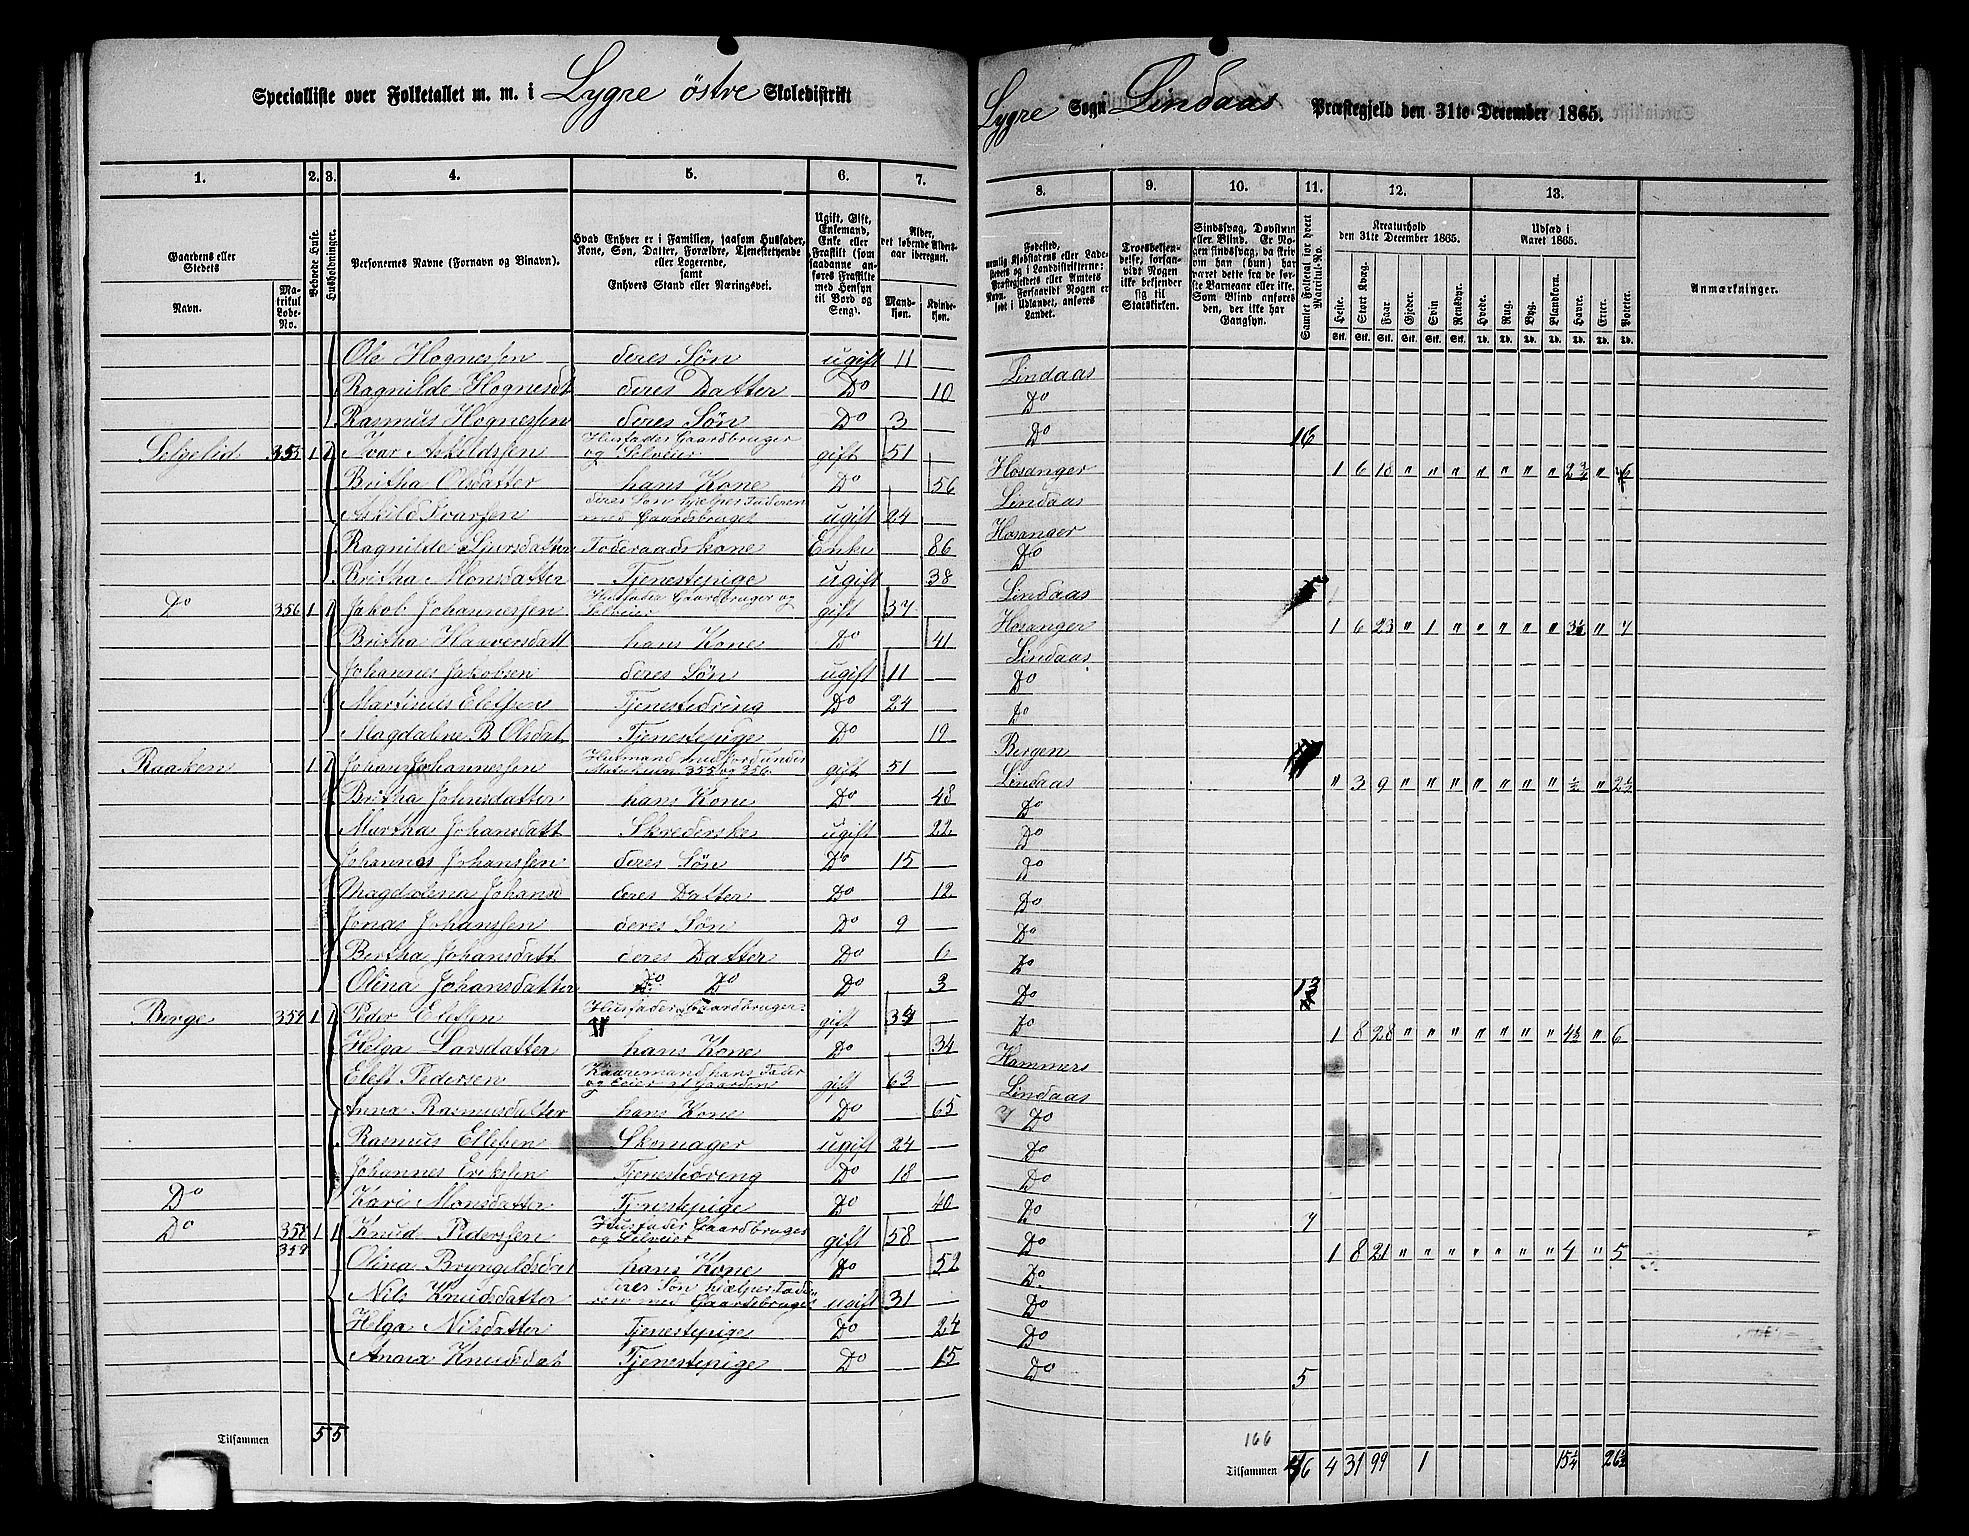 Specialliste over Folketallet m. m. i Lygre östre Skoledistrikt
Lygre Sogn Lindaas Præstegjeld den 31te December 1865.
1. 2. 3. 4. 5. 6. 7.
8. 9. 10. 11. 12. 13.
Gaardens eller Stedets
Navn.
Matrikul Løbe-No.
Beboede Huse.
Husholdninger.
Personernes Navne (Fornavn og Binavn).
Hvad Enhver er i Familien, saasom Husfader, Kone, Søn, Datter, Forældre, Tjenestetyende eller Logerende, samt Enhvers Stand eller Næringsvei.
Ugift, Gift, Enkemand, Enke eller Fraskilt (som saadanne anføres Fraskilte med Hensyn til Bord og Seng).
Alder, det løbende Alders-aar iberegnet.
Mandkjøn. Kvindekjøn.
Fødested,
Troesbekjendelse, forsaavidt Nogen ikke bekjender sig til Statskirken.
Sindssvag, Døvstum eller Blind.
Samlet Folketal for hvert Matrikul-No.
Kreaturhold den 31te December 1865.
Heste. Stort Kvæg. Faar. Gjeder. Svin. Rensdyr.
Udsæd i Aaret 1865.
Hvede. Rug. Byg. Blandkorn. Havre. Erter. Poteter.
Anmærkninger.
Ole Hognessen deres Søn ugift 11 Lindaas
Ragnilde Hognesdt deres Datter Do 10 Do
Rasmus Hognessen deres Søn Do 3 Do 16
Selgelid 355 1 1 Ivar Askildssen Husfader Gaardbruger og Selveier gift 51 Hosanger 1 6 18 " 1 " " " " " 2 3/4 " 6
Britha Olsdatter hans Kone Do 56 Lindaas
Askild Ivarsen deres Søn hjælper Faderen med Gaardsbruget ugift 24 Hosanger
Ragnilde Sjursdatter Føderaadskone Enke 86 Do
Britha Monsdatter Tjenestepige ugift 38 Lindaas
Do 356 1 1 Jakob Johannessen Husfader Gaardbruger og Selveier gift 37 Hosanger 1 6 23 " 1 " " " " " 3 1/2 " 7
Britha Haaversdatt hans Kone Do 41 Lindaas
Johannes Jakobsen deres Søn ugift 11 Do
Martinus Elefsen Tjenestedring Do 24 Do
Magdalene B Olsdat Tjenestepige Do 19 Bergen
Raaken 1 1 Johan Johannessen Husmand med Jord under gift 51 Lindaas " 3 9 " " " " " " " 1/2 " 2 1/2
Britha Johnsdatter hans Kone Do 48 Do
Martha Johansdatt Skrederske ugift 22 Do
Johannes Johanssen deres Søn Do 15 Do
Magdalena Johansd deres Datter Do 12 Do
Jonas Johanssen deres Søn Do 9 Do
Bertha Johansdatt deres Datter Do 6 Do
Olina Johansdatter Do Do Do 3 Do 13
Berge 357 1 1 Peder Elefsen Husfader Gaardbruger gift 34 Do 1 8 28 " " " " " " " 4 1/2 " 6
Helga Larsdatter hans Kone Do 34 Hammers
Elef Pedersen Kaaremand hans Fader og Eeier af Gaarden gift 63 Lindaas
Anna Rasmusdatter hans Kone Do 65 Do
Rasmus Elefsen Skomager ugift 24 Do
Johannes Erikssen Tjenestedreng Do 18 Do
Do Kari Monsdatter Tjenestepige Do 40 Do 7
Do 358 359 1 1 Knud Pederssen Husfader Gaardbruger og Selveier gift 58 Do 1 8 21 " " " " " " " 4 " 5
Olina Bryngeldsdat hans Kone Do 52 Do
Nils Knudsdatter deres Søn hjælper Faderen med Gaardsbruget ugift 31 Do
Helga Nilsdatter Tjenestepige Do 24 Do
Anna Knudsdat Tjenestepige Do 15 Do 5
Tilsammen 5 5
166
Tilsammen 4 31 99 1 15 1/4 26 1/2